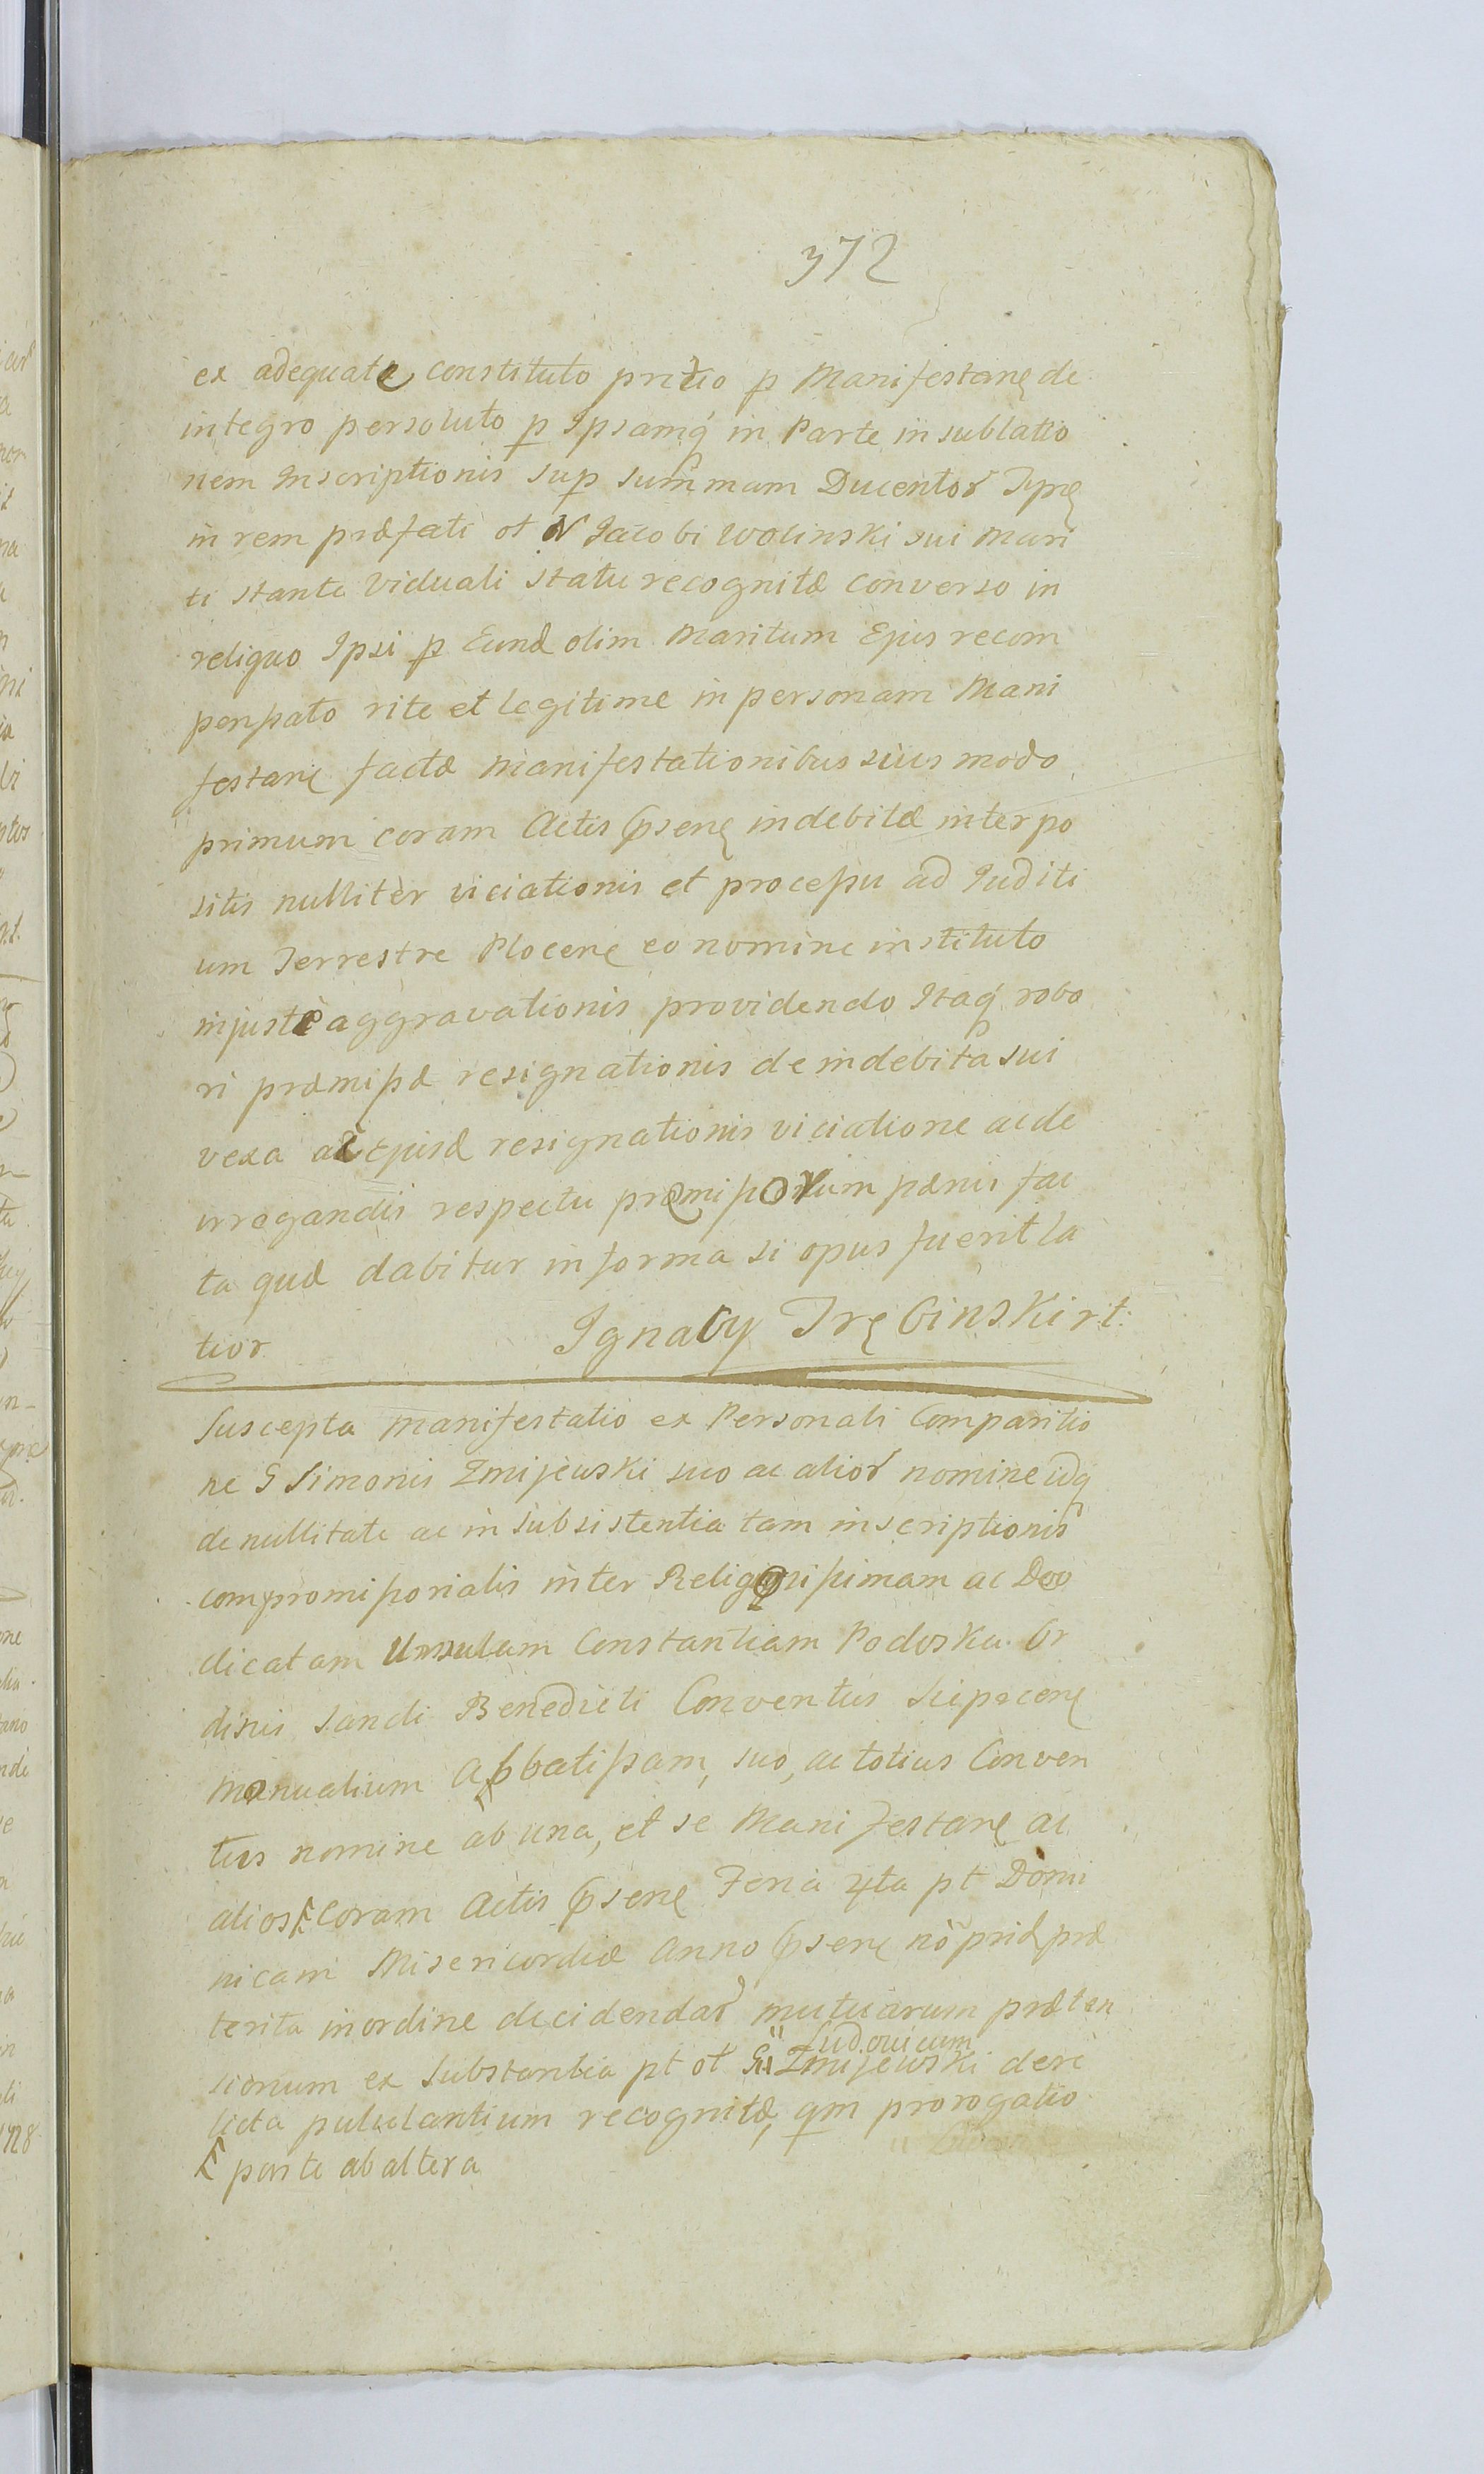 372
ex adequate constituto pretio p Manifestanę de
integro persoluto p Ipsamq́ in Parte in sublatio
nem Inscriptionis sup summam Ducentor Tynę
in rem præfati ol N Jacobi Wolinski sui Mari
ti stante Viduali statu recognitæ converso in
reliquo Ipsi p Eund olim Maritum Ejus recom
penßato rite et legitime in personam Mani
festanę factæ manifestationibus
primum coram Actis Pħsenę indebitæ interpo
sitis nulliter viciationis et proceßu ad Juditi
um Terrestre Plocenę eo nomine instituto
injustè aggravationis providendo Itaq́ robo
ri præmißæ resignationis de indebita sui
vexa ac Ejusd resignationis viciatione ac de
irrogandis respectu præmißorum pænis fac
ta quæ dabitur in forma si opus fuerit la
tior Ignacy Trębinski rt:
Suscepta manifestatio ex Personali Comparitio
ne G Simonis Zmijewski suo ac alior nomine idq
de nullitate ac in subsistentia tam inscriptionis
compromißorialis inter Religiosißimam ac Deo
dicatam Ursulam Constantiam Podoska Or
dinis Sancti Benedicti Conventus Sieprcenę
Monualium Abbatißam, suo, ac totius Conven
tus nomine ab una, et se Manifestanę ac
alios Coram Actis Pħsenę Feria 4ta pt Domi
nicam Misericordiæ Anno Pħsenę nō prid præ
terita in ordine decidendar mutuarum præten
Ludovicum
sionum ex Substantia pt ol G Zmijewski dere
licta pululantium recognitæ, qm prorogatio
parte ab altera